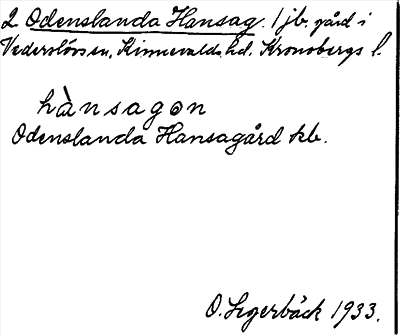 2 Odenslanda Hansag. 1 jb. gård i
Vederslövs sn, Kinnevalds hd. Kronobergs l.
hànsagən
Odenslanda Hansagård kb.
O. Segerbäck 1933.